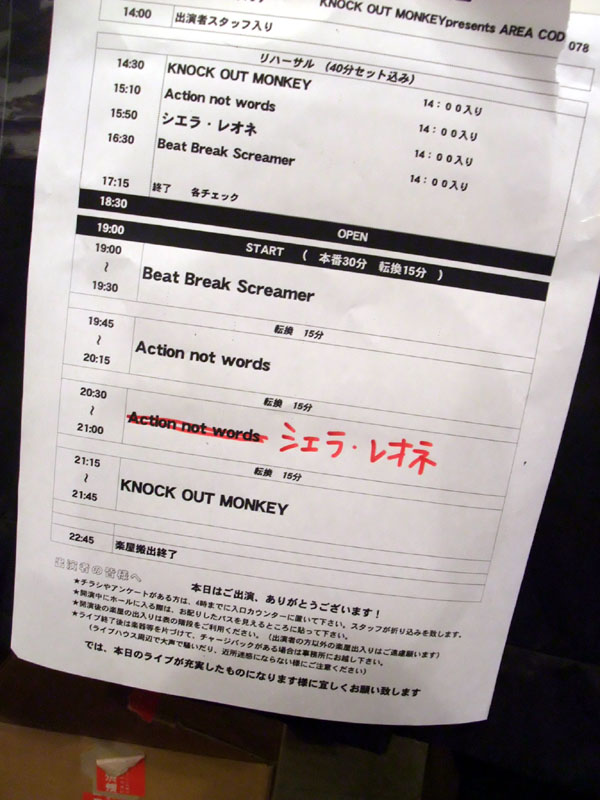 KNOCK OUT MONKEYpresents AREA COD
078
14:00 出演者スタッフ入り
リハーサル (40分セット込み)
14:30 KNOCK OUT MONKEY 14:00入り
15:10 Action not words 14:00入り
15:50 シエラ・レオネ 14:00入り
16:30 Beat Break Screamer 14:00入り
17:15 終了 各チェック
18:30 OPEN
19:00 START ( 本番30分 転換15分 )
19:00
~
19:30
Beat Break Screamer
転換 15分
19:45
~
20:15
Action not words
転換 15分
20:30
~
21:00
Action not words シエラ・レオネ
転換 15分
21:15
~
21:45
KNOCK OUT MONKEY
22:45 楽屋搬出終了
出演者の皆様へ
本日はご出演、ありがとうございます!
★チラシやアンケートがある方は、4時までに入口カウンターに置いて下さい。スタッフが折り込みを致します。
★開演中にホールに入る際は、お配りしたパスを見えるところに貼って下さい。
★開演後の楽屋の出入りは表の階段をご利用ください。(出演者の方以外の楽屋出入りはご遠慮願います)
★ライブ終了後は楽器等を片づけて、チャージバックがある場合は事務所にお越し下さい。
(ライブハウス周辺で大声で騒いだり、近所迷惑にならない様にご注意ください)
では、本日のライブが充実したものになります様に宜しくお願い致します